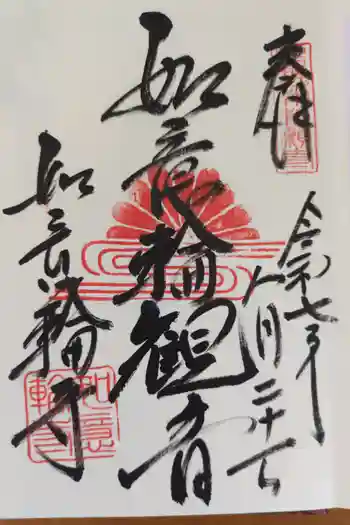 奉拝
令和七年
八月二十七日
如意輪観音
如意輪寺